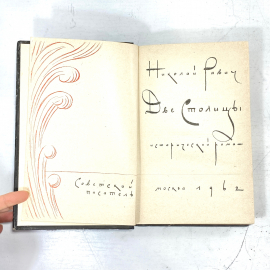 Советский
писатель
Николай Равич
Две Столицы
исторический роман
москва 1962